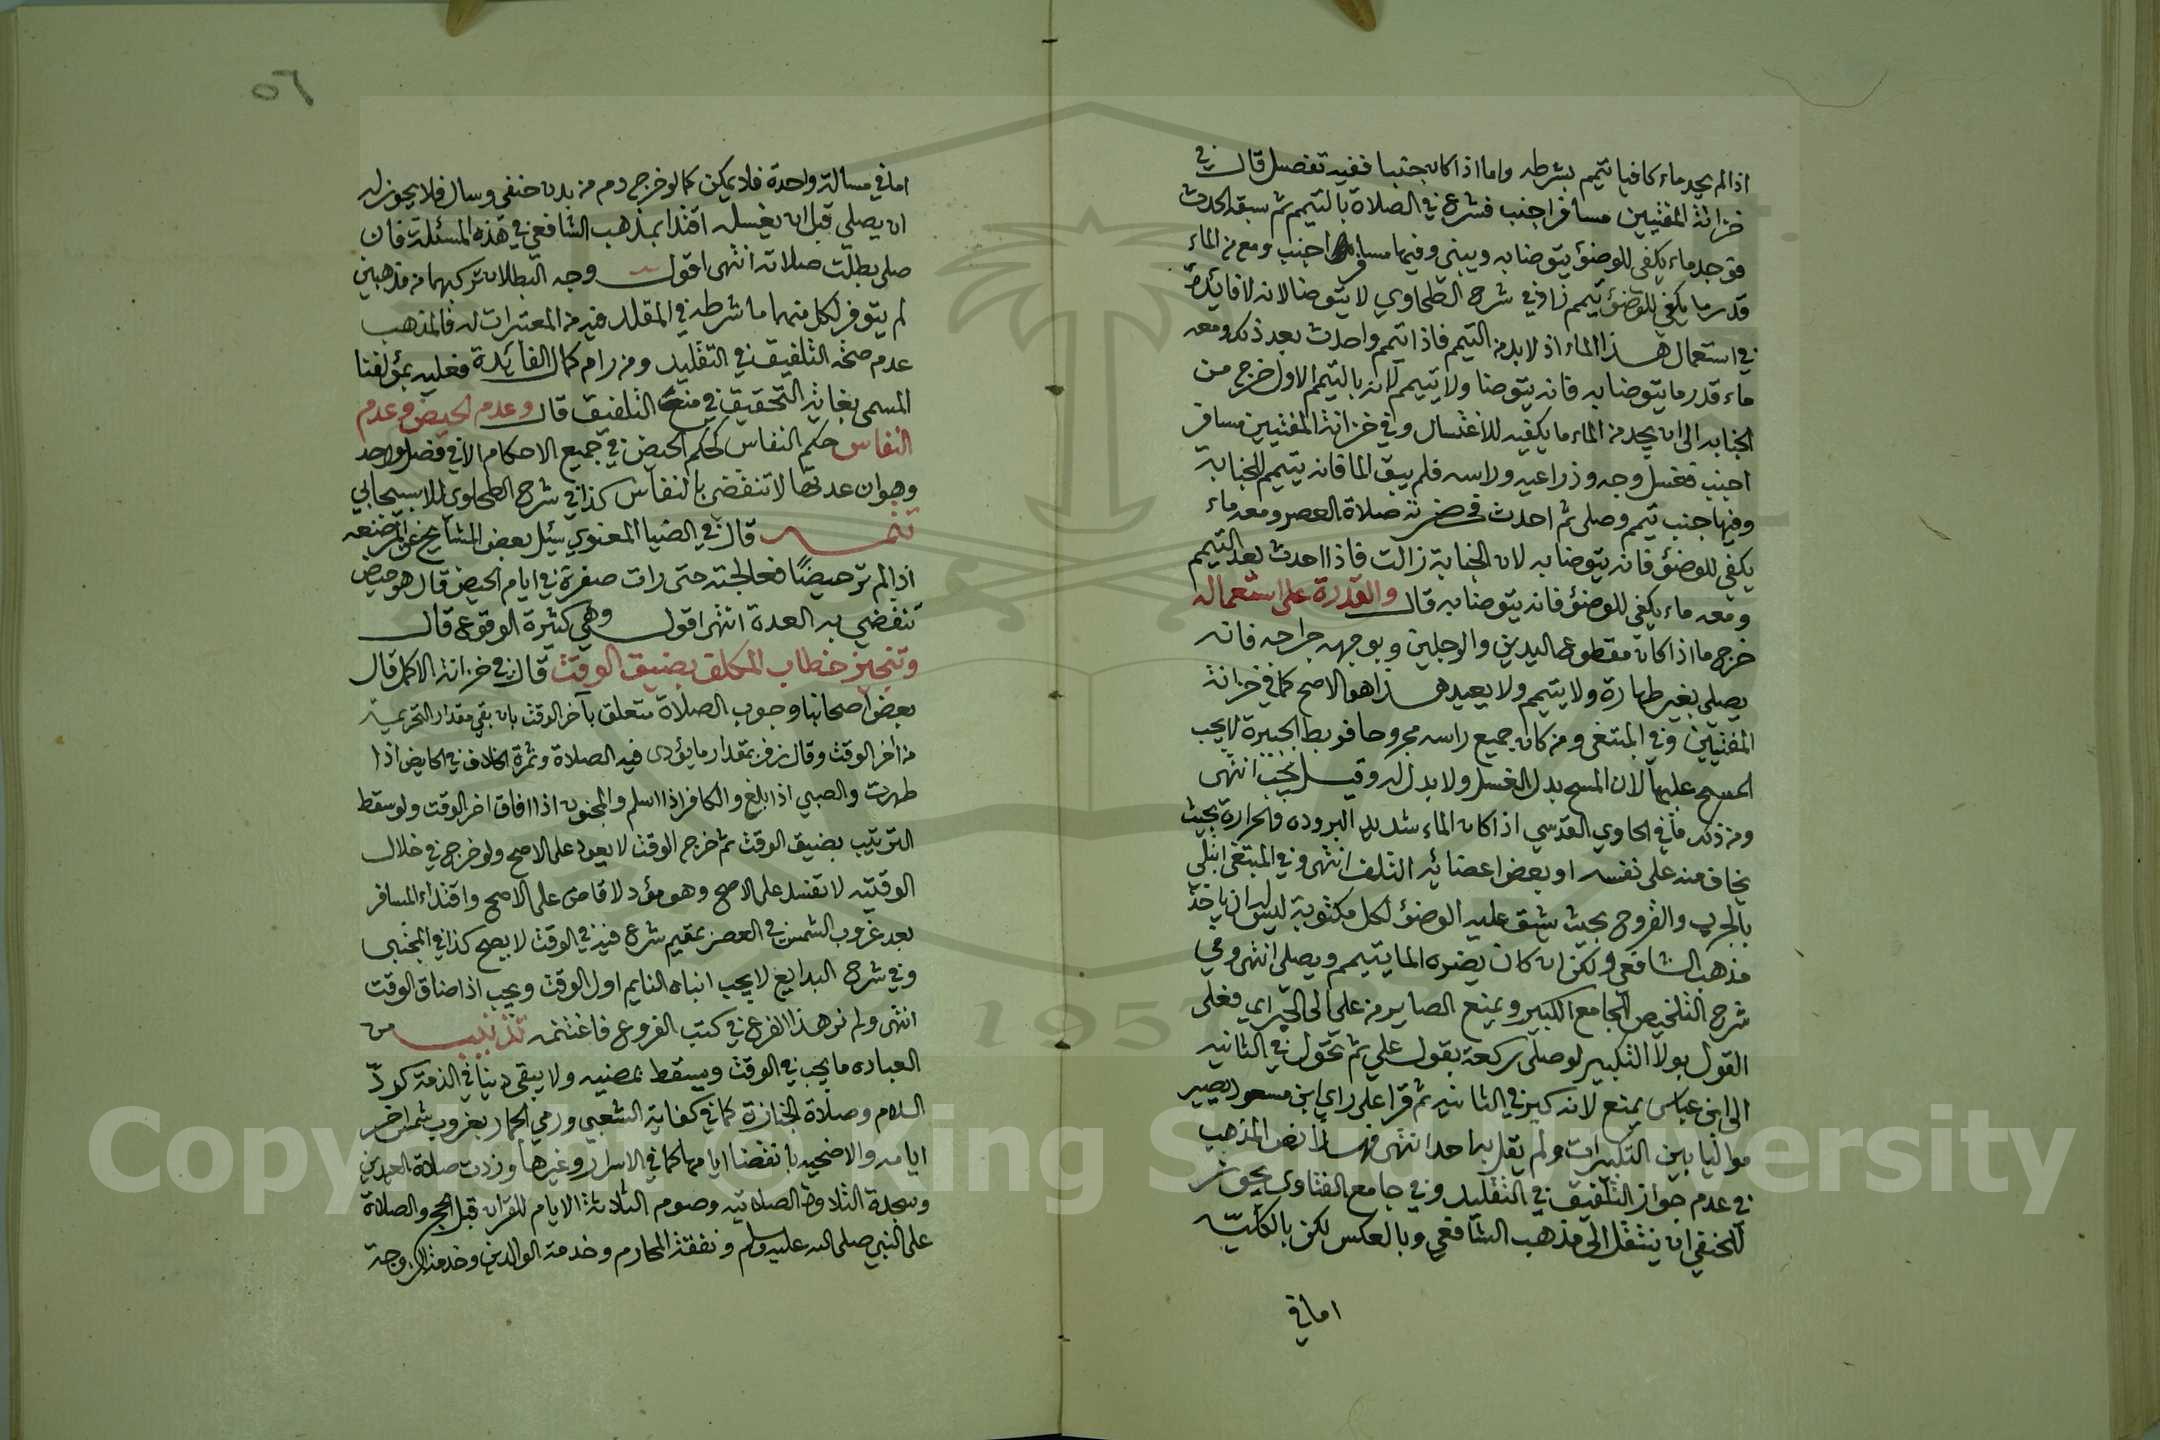 اذا لم يجد ماء كافيا تيمم بشرطه واما اذا كان جنبا ففيه تفصيل قال في
خزانة المفتيين مسافر اجنب فشرع في الصلاة بالتيمم ثم سبقه الحدث
فوجد ماء يكفي للوضؤ يتوضا به ويبنى وفيها مسافر اجنب ومعه من الماء
قدر ما يكفي للوضؤ تيمم زاد في شرح الطحاوي لا يتوضا لانه لا فائدة
في استعمال هذا الماء اذ لا بد من التيمم فاذا تيمم واحدث بعد ذلك ومعه
ماء قدر ما يتوضا به فانه يتوضا ولا يتيمم لانه بالتيمم الاول خرج من
الجنابه الى ان يجد من الماء ما يكفيه للاغتسال وفي خزانة المفتيين مسافر
اجنب فغسل وجه وذراعيه وراسه فلم يبق الما فانه يتيمم للجنابة
وفيها جنب تيمم وصلى ثم احدث فحضرته صلاة العصر ومعه ماء
يكفي للوضؤ فانه يتوضا به لان الجنابة زالت فاذا احدث بعد التيمم
ومعه ماء يكفي للوضؤ فانه يتوضا به قال والقدرة على استعماله
خرج ما اذا كان مقطوع اليدين والرجلين وبوجهه جراحه فانه
يصلي بغير طهارة ولا يتيمم ولا يعيد هذا هو الاصح كما في خزانة
المفتيين وفي المبتغى ومن كان جميع راسه مجروحا فربط الجبيرة لا يجب
المسح عليها لان المسح بدل الغسل ولا بدل له وقيل يجب انتهى
ومن ذلك ما في الحاوي القدسي اذا كان الماء شديد البروده والحرارة بحيث
يخاف منه على نفسه او بعض اعضائه التلف انتهى وفي المبتغى ابتلي
بالجرب والقروح بحيث يشق عليه الوضؤ لكل مكتوبة ليس له ان ياخذ
مذهب الشافعي ولكن ان كان يضره الما يتيمم ويصلي انتهى وفي
شرح التلخيص الجامع الكبير ويمنع الصاير من علي الى الحبر اي فعلى
القول بولا التكبير لو صلى ركعة بقول علي ثم تحول في الثانيه
الى ابن عباس يمنع لانه كبر في الثانيه ثم قرا على راي ابن مسعود يصير
مواليا بين التكبيرات ولم يقل به احد انتهى فهذا نص المذهب
في عدم جواز التلفيق في التقليد وفي جامع الفتاوى يجوز
للحنفي ان ينتقل الى مذهب الشافعي وبالعكس لكن بالكليه
اما في
٥٦
اما في مسالة واحدة فلا يمكن كما لو خرج دم من بدن حنفي وسال فلا يجوز له
ان يصلي قبل ان يغسله اقتدا بمذهب الشافعي في هذه المسئلة فان
صلى بطلت صلاته انتهى اقول وجه البطلان تركبهما من مذهبين
لم يتوفر لكل منهما ما شرطه في المقلد فيه من المعتبرات له فالمذهب
عدم صحة التلفيق في التقليد ومن رام كمال الفائدة فعليه بمؤلفنا
المسمى بغاية التحقيق في منع التلفيق قال وعدم الحيض وعدم
النفاس حكم النفاس كحكم الحيض في جميع الاحكام الا في فصل واحد
وهو ان عدتها لا تنقضي بالنفاس كذا في شرح الطحاوي للاسبيجابي
تتمه قال في الضيا المعنوي سئل بعض المشايخ عن المرضعه
اذا لم تر حيضا فعالجته حتى رات صفرة في ايام الحيض قال هو حيض
تنقضي به العدة انتهى اقول وهي كثيرة الوقوع قال
وتنجيز خطاب المكلف بضيق الوقت قال في خزانة الاكمل قال
بعض اصحابنا وجوب الصلاة متعلق بآخر الوقت بان بقي مقدار التحريمة
من اخر الوقت وقال زفر بمقدار ما يؤدى فيه الصلاة وثمرة الخلاف في الحايض اذا
طهرت والصبي اذا بلغ والكافر اذا اسلم والمجنون اذا افاق اخر الوقت ولو سقط
الترتيب بضيق الوقت ثم خرج الوقت لا يعود على الاصح ولو خرج في خلال
الوقتيه لا تفسد على الاصح وهو مؤد لا قاض على الاصح واقتداء المسافر
بعد غروب الشمس في العصر بمقيم شرع فيه في الوقت لا يصح كذا في المجتبى
وفي شرح البدايع لا يجب انباه النايم اول الوقت ويجب اذا ضاق الوقت
انتهى ولم نر هذا الفرع في كتب الفروع فاغتنمه تذنيب من
العباده ما يجب في الوقت ويسقط بمضيه ولا يبقى دينا في الذمة كرد
السلام وصلاة الجنازة كما في كفاية الشعبي ورمي الجمار بغروب شمس اخر
ايامه والاضحيه بانقضا ايامها كما في الاسرار وغيرها وزدت صلاة العيدين
وسجدة التلاوة الصلاتيه وصوم الثلاثة الايام للقران قبل الحج والصلاة
على النبي صلى الله عليه وسلم ونفقة المحارم وخدمة الوالدين وخدمة الزوجة
1957
Copyright © King Saud University